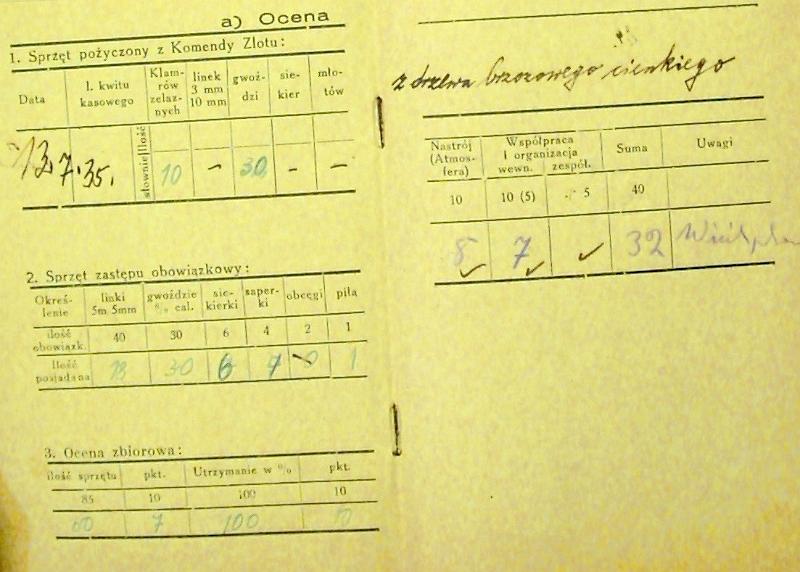 a) Ocena
1. Sprzęt pożyczony z Komendy Zlotu:
Data l. kwitu kasowego Klamrów żelaznych linek 3 mm 10 mm gwoździ siekier młotów
13.7.35. słownie Ilość 10 – 30 – –
2. Sprzęt zastępu obowiązkowy:
Określenie linki 5m 5mm gwoździe cal. siekierki saperki obcęgi piła
ilość obowiązk. 40 30 6 4 2 1
Ilość posiadana 18 30 6 4 0 1
3. Ocena zbiorowa:
ilość sprzętu pkt. Utrzymanie w % pkt.
85 10 100 10
60 7 100 10
z drzewa brzozowego cienkiego
Nastrój (Atmosfera) Współpraca i organizacja wewn. zespół. Suma Uwagi
10 10 (5) 5 40
8 7 32